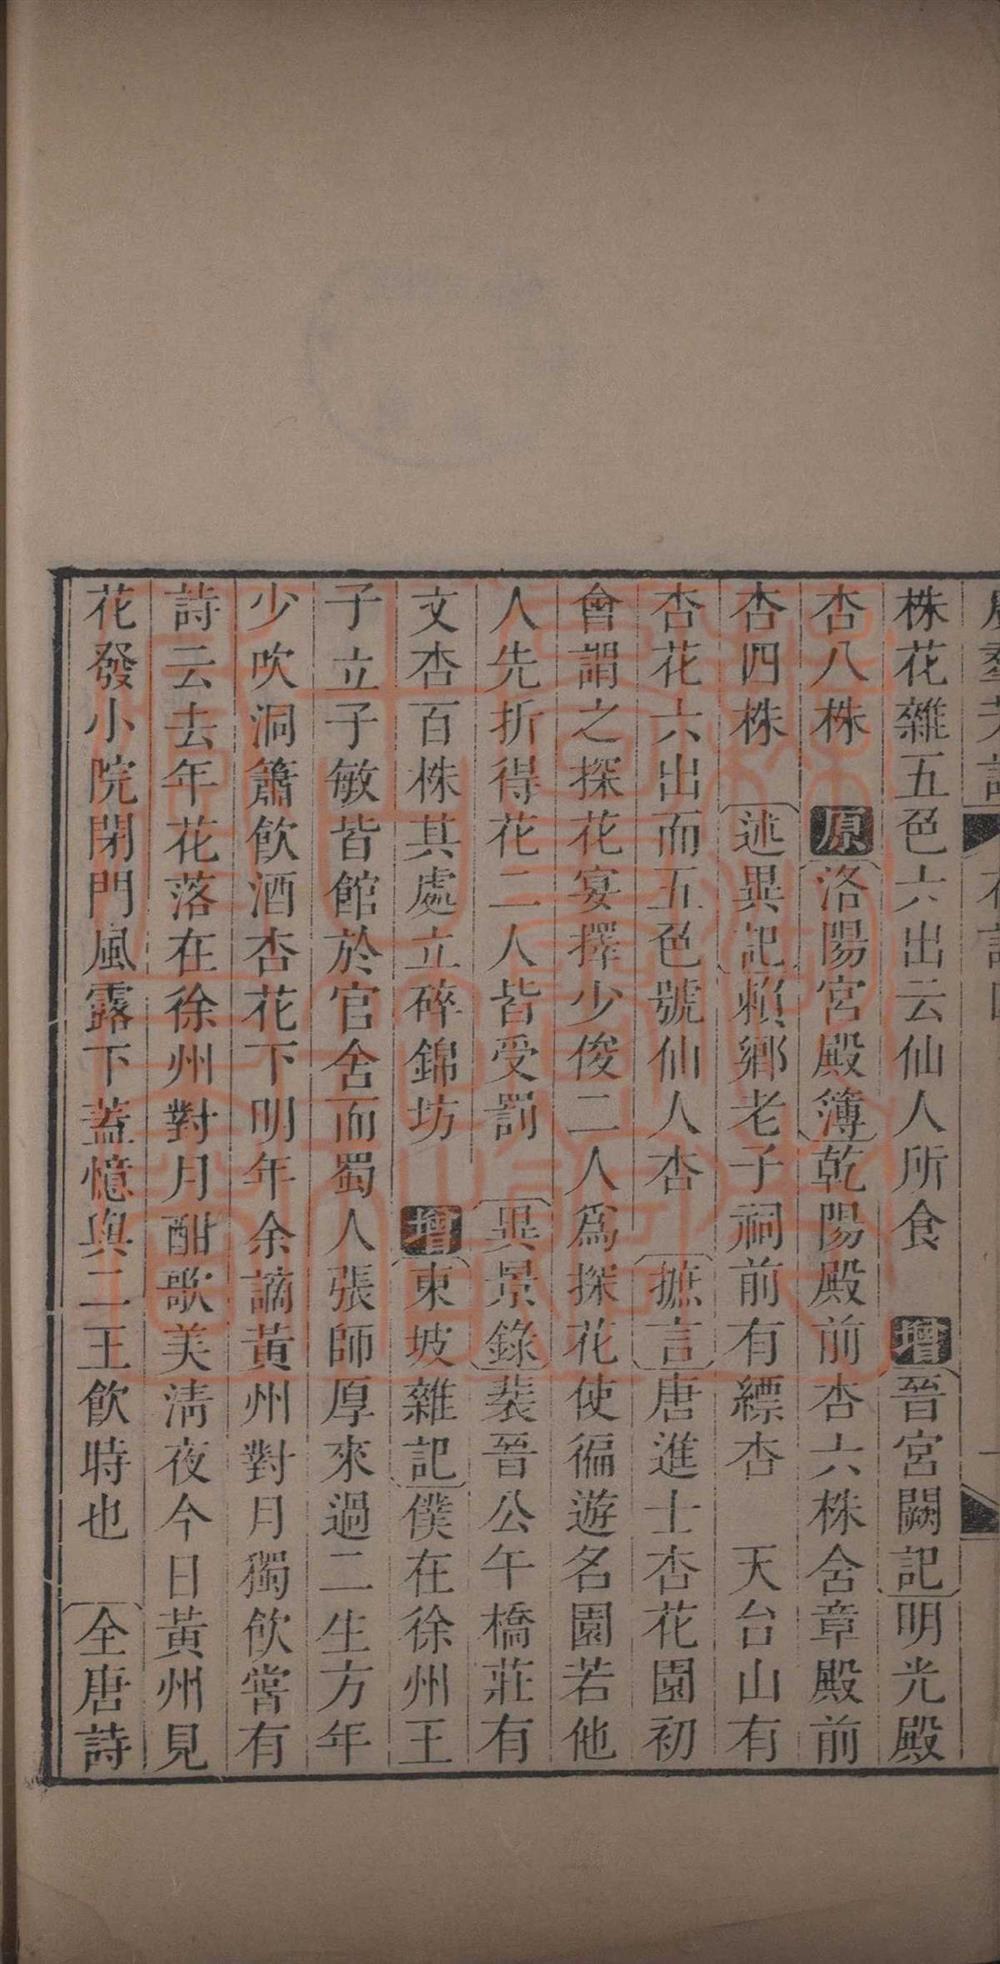 株花雜五色六出云仙人所食 增 晉宮闕記明光殿前
杏八株 原 洛陽宮殿簿乾陽殿前杏六株含章殿前
杏四株 述異記賴鄉老子祠前有縹杏 天台山有
杏花六出而五色號仙人杏 摭言唐進士杏花園初
會謂之探花宴擇少俊二人爲探花使徧遊名園若他
人先折得花二人皆受罰 異景錄裴晉公午橋莊有
文杏百株其處立碎錦坊 增 東坡雜記僕在徐州王
子立子敏皆館於官舍而蜀人張師厚來過二生方年
少吹洞簫飲酒杏花下明年余謫黃州對月獨飲嘗有
詩云去年花落在徐州對月酣歌美淸夜今日黃州見
花發小院閉門風露下蓋憶與二王飲時也 全唐詩